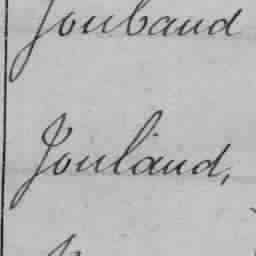 Joubaud
Jouland,